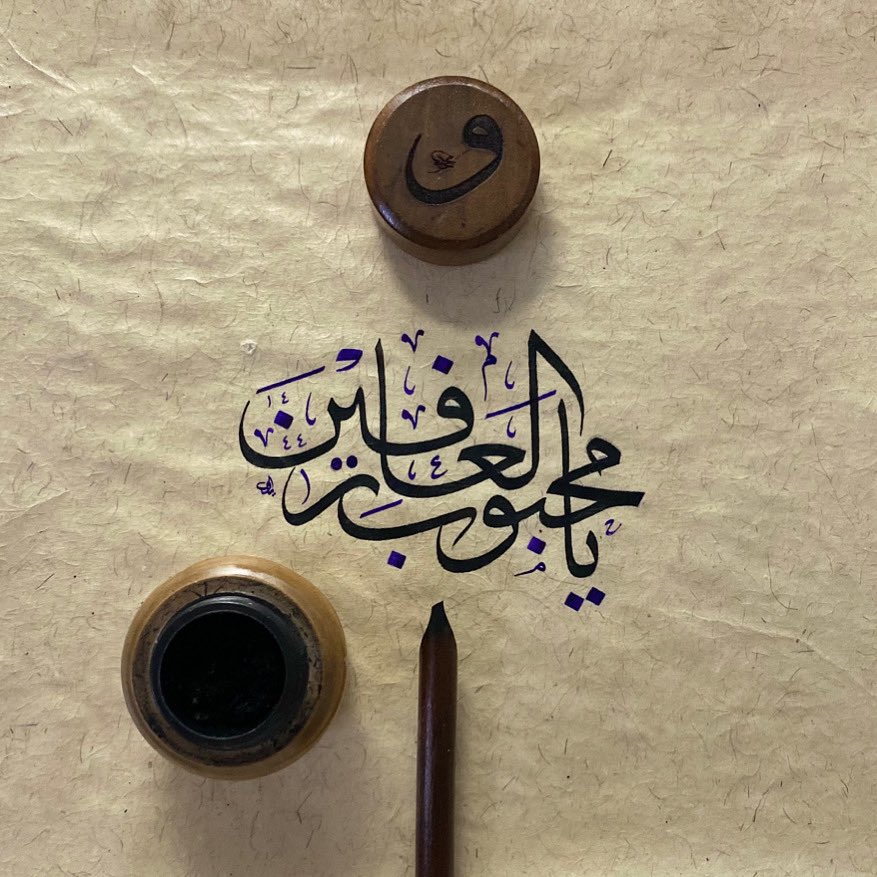 و
يا محبوب العارفين